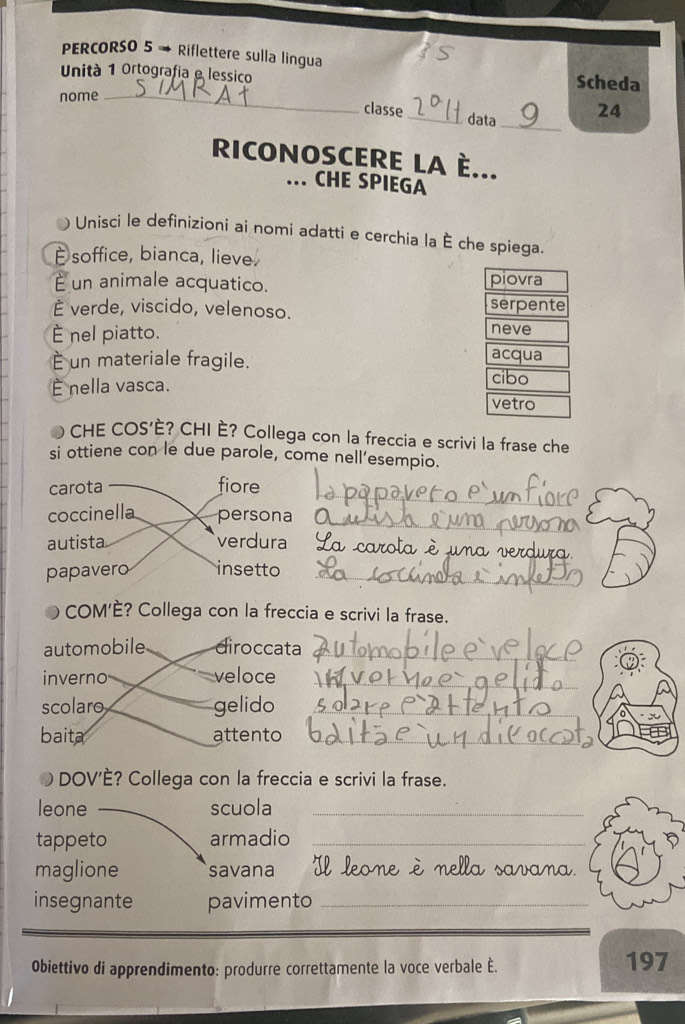 35
PERCORSO 5 ➡ Riflettere sulla lingua
Unità 1 Ortografia e lessico
Scheda
24
nome SIMRAt classe data 9
RICONOSCERE LA È...
... CHE SPIEGA
Unisci le definizioni ai nomi adatti e cerchia la È che spiega.
È soffice, bianca, lieve.
È un animale acquatico. piovra
È verde, viscido, velenoso. serpente
È nel piatto. neve
È un materiale fragile. acqua
È nella vasca. cibo
vetro
CHE COS'È? CHI È? Collega con la freccia e scrivi la frase che
si ottiene con le due parole, come nell'esempio.
carota fiore la papavero e' un fiore
coccinella persona autista e' una persona
autista verdura La carota è una verdura.
papavero insetto la
COM'È? Collega con la freccia e scrivi la frase.
automobile diroccata automobile e' veloce
inverno veloce inverno e' gelido
scolaro gelido solare e' attento
baita attento baita e' un diroccata
DOV'È? Collega con la freccia e scrivi la frase.
leone scuola
tappeto armadio
maglione savana Il leone è nella savana.
insegnante pavimento
Obiettivo di apprendimento: produrre correttamente la voce verbale È.
197